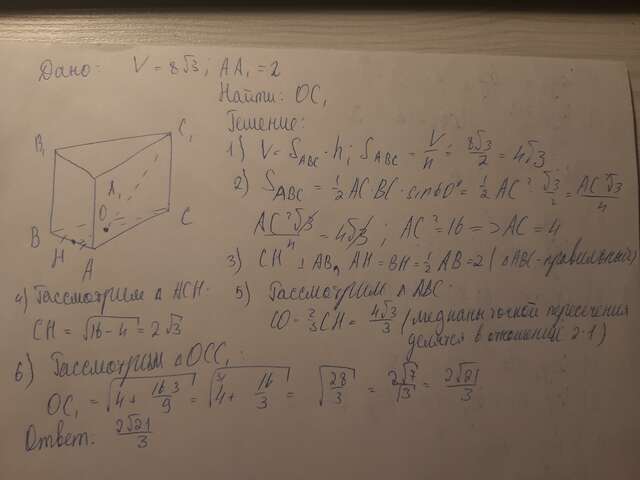 Дано: V = 8√3; AA₁ = 2
Найти: OC₁
Решение:
1) V = S_ABC · h; S_ABC = V/h = 8√3/2 = 4√3
2) S_ABC = 1/2 AC · BC · sin60° = 1/2 AC² · √3/2 = AC²√3/4
AC²√3/4 = 4√3; AC² = 16 => AC = 4
3) CH ⊥ AB, AH = BH = 1/2 AB = 2 (△ABC - правильный)
4) Рассмотрим △ ACH:
CH = √(16 - 4) = 2√3
5) Рассмотрим △ ABC:
CO = 2/3 CH = 4√3/3 (медианы точкой пересечения
делятся в отношении 2:1)
6) Рассмотрим △OCC₁:
OC₁ = √(4 + 16·3/9) = √(4 + 16/3) = √(28/3) = 2√7/√3 = 2√21/3
Ответ: 2√21/3
B₁
C₁
A₁
O
B
C
H
A